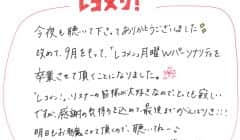 レコメン!
今夜も聴いて下さってありがとうございました
改めて、9月をもって、「レコメン」月曜Wパーソナリティを
卒業させて頂くことになりました。
「レコメン!」リスナーの皆様が大好きなので、とっても寂しい
ですが、感謝の気持ちを込めて最後までがんばります!!!
明日もお勤めさせて頂くので、聴いてねー♪